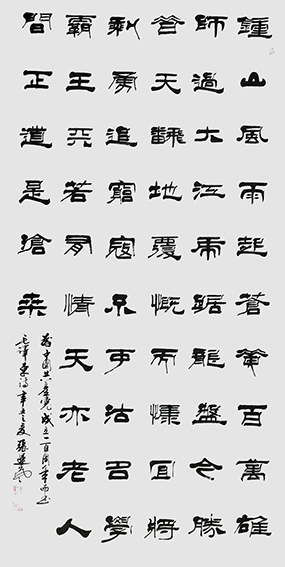 鍾山風雨起蒼黃百萬雄
師過大江虎踞龍盤今勝
昔天翻地覆慨而慷宜將
剩勇追窮寇不可沽名學
霸王天若有情天亦老人
間正道是滄桒
為中國共產党成立一百周年而書
毛澤東詩辛丑之夏張